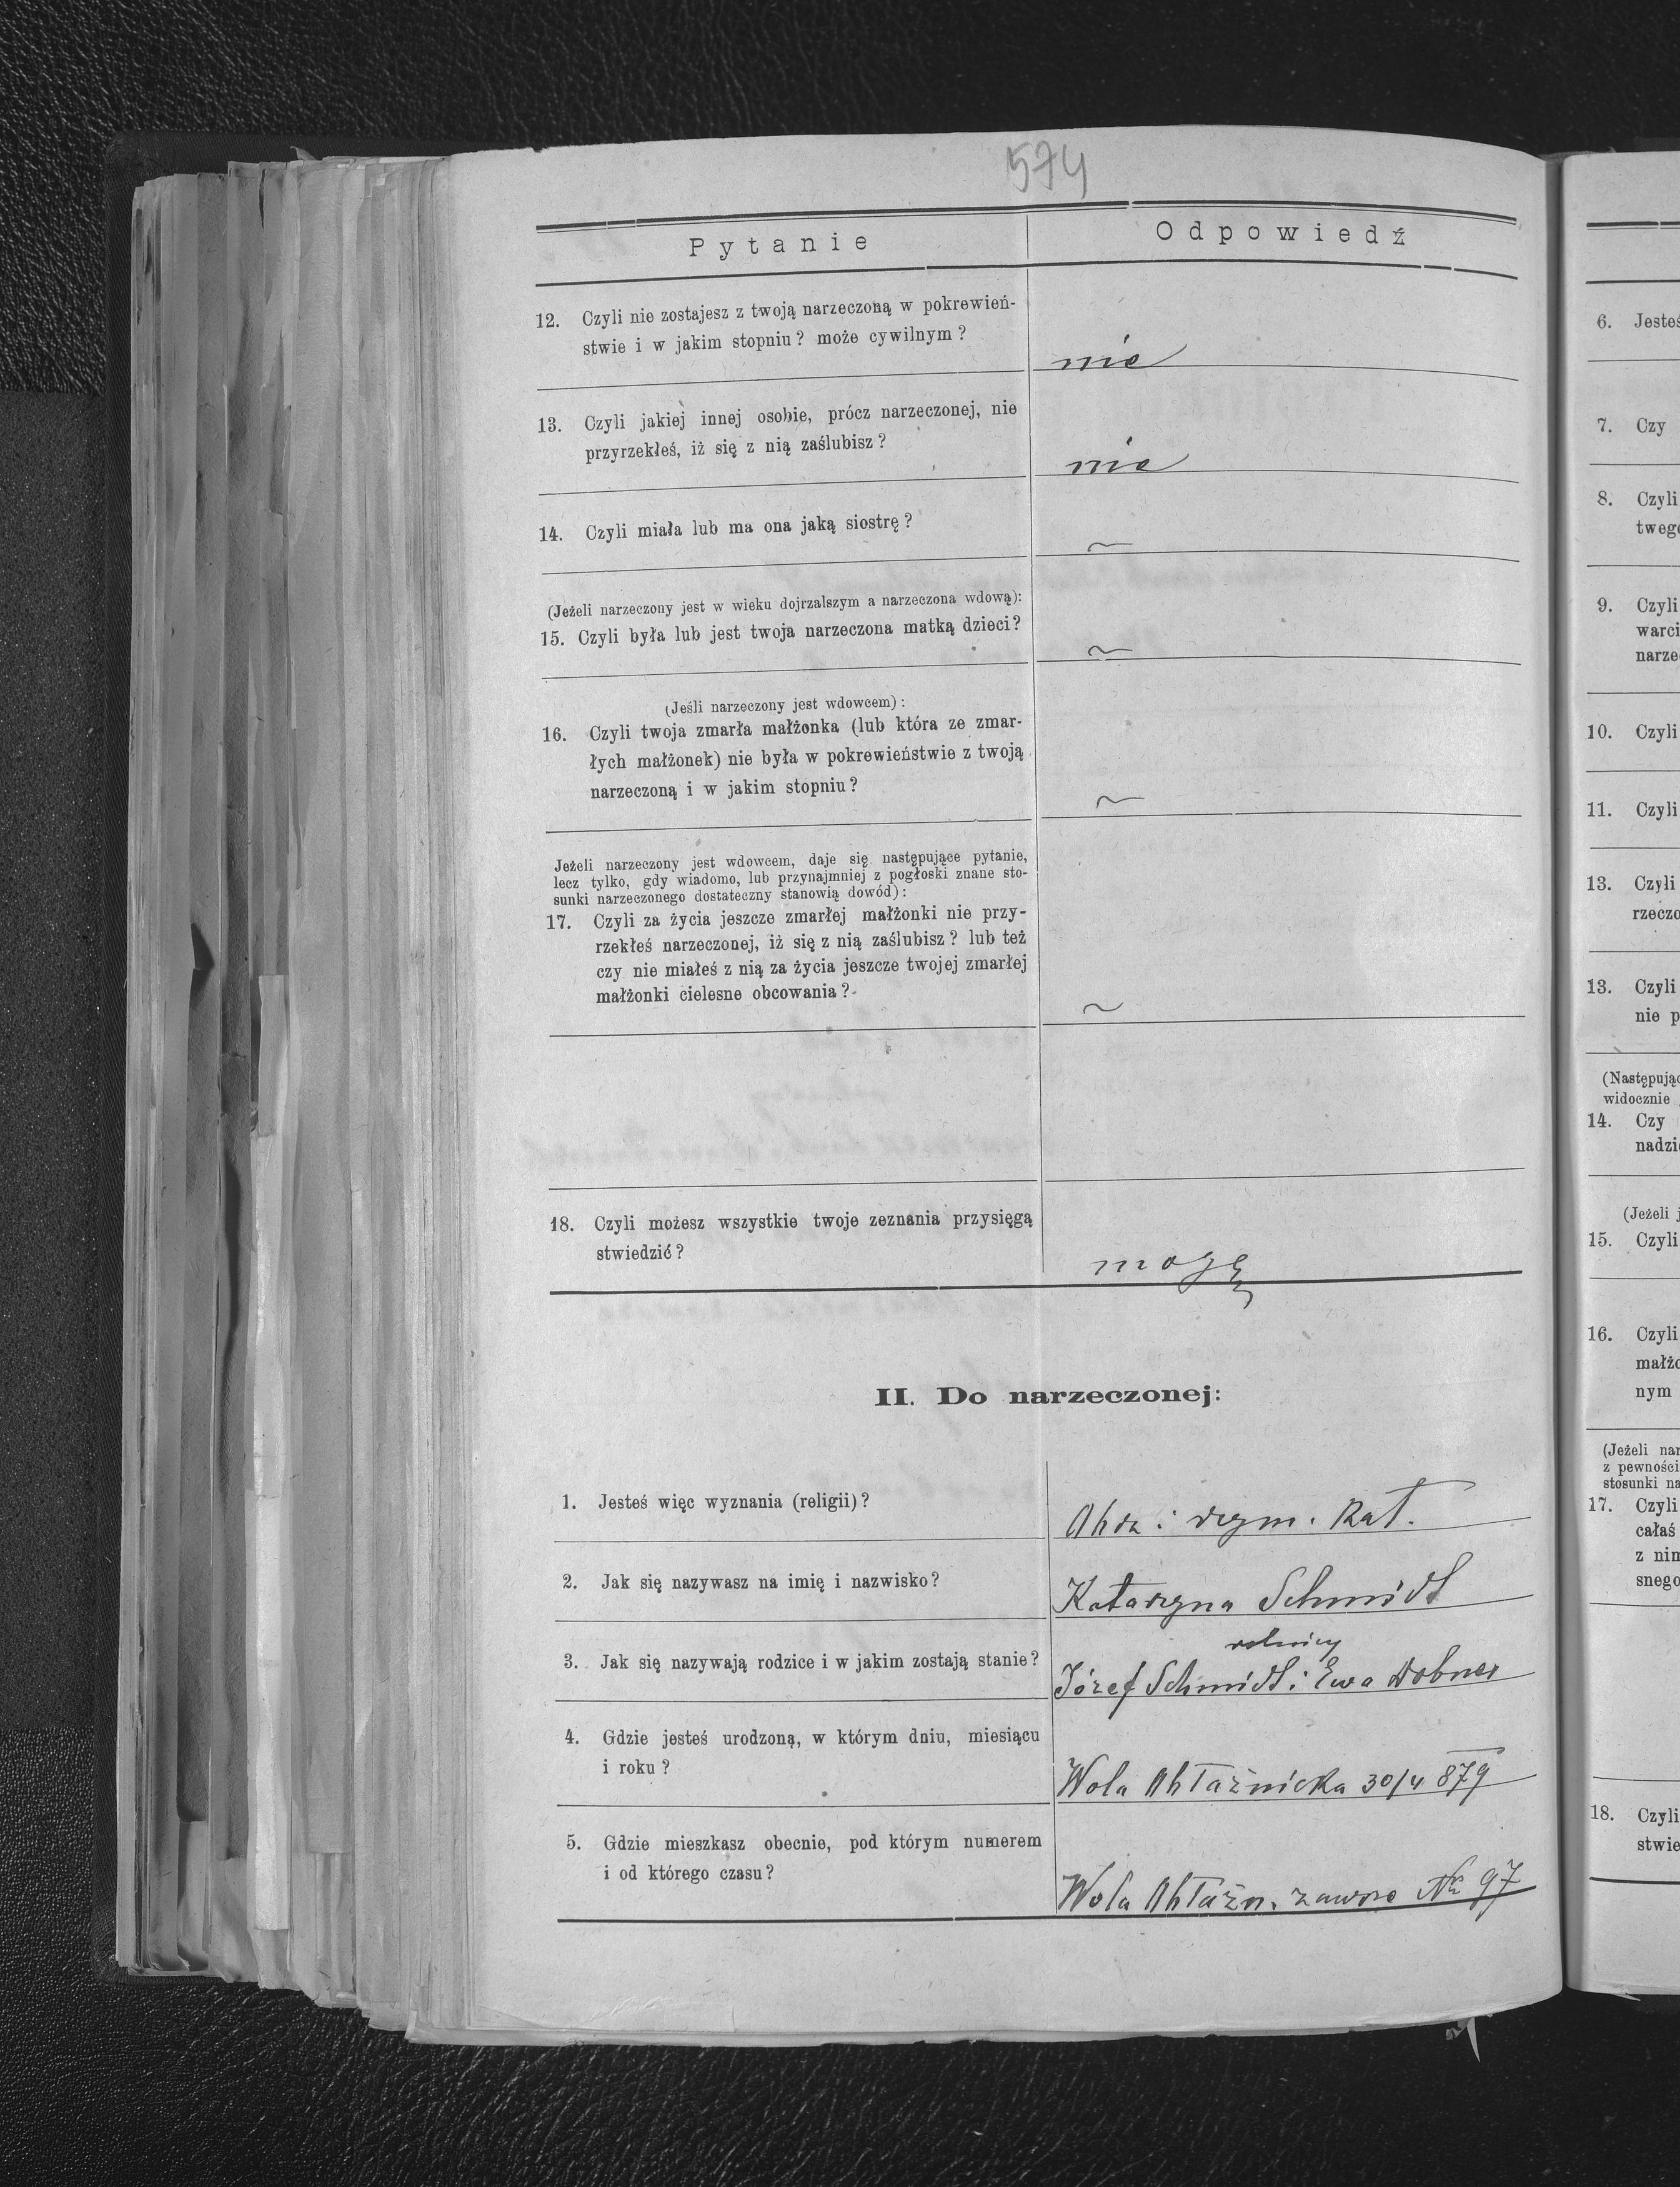 574
Pytanie
Odpowiedź
12. Czyli nie zostajesz z twoją narzeczoną w pokrewień-
stwie i w jakim stopniu? może cywilnym?
nie
13. Czyli jakiej innej osobie, prócz narzeczonej, nie
przyrzekłeś, iż się z nią zaślubisz?
nie
14. Czyli miała lub ma ona jaką siostrę?
~
(Jeżeli narzeczony jest w wieku dojrzalszym a narzeczona wdową):
15. Czyli była lub jest twoja narzeczona matką dzieci?
~
(Jeśli narzeczony jest wdowcem):
16. Czyli twoja zmarła małżonka (lub która ze zmar-
łych małżonek) nie była w pokrewieństwie z twoją
narzeczoną i w jakim stopniu?
~
Jeżeli narzeczony jest wdowcem, daje się następujące pytanie,
lecz tylko, gdy wiadomo, lub przynajmniej z pogłoski znane sto-
sunki narzeczonego dostateczny stanowią dowód):
17. Czyli za życia jeszcze zmarłej małżonki nie przy-
rzekłeś narzeczonej, iż się z nią zaślubisz? lub też
czy nie miałeś z nią za życia jeszcze twojej zmarłej
małżonki cielesne obcowania?
~
18. Czyli możesz wszystkie twoje zeznania przysięgą
stwiedzić?
mogę
II. Do narzeczonej:
1. Jesteś więc wyznania (religii)?
rzym. Kat.
2. Jak się nazywasz na imię i nazwisko?
Katarzyna Schmidt
3. Jak się nazywają rodzice i w jakim zostają stanie?
rolnicy
Józef Schmidt i Ewa Dobner
4. Gdzie jesteś urodzoną, w którym dniu, miesiącu
i roku?
Wola 30/4 879
5. Gdzie mieszkasz obecnie, pod którym numerem
i od którego czasu?
Wola zawsze № 97
6. Jesteś
7. Czy
8. Czyli
twego
9. Czyli
warci
narze
10. Czyli
11. Czyli
13. Czyli
rzeczo
13. Czyli
nie p
(Następując
widocznie
14. Czy
nadzie
(Jeżeli j
15. Czyli
16. Czyli
małżo
nym
(Jeżeli nar
z pewności
stosunki na
17. Czyli
całaś
z nim
snego
18. Czyli
stwie